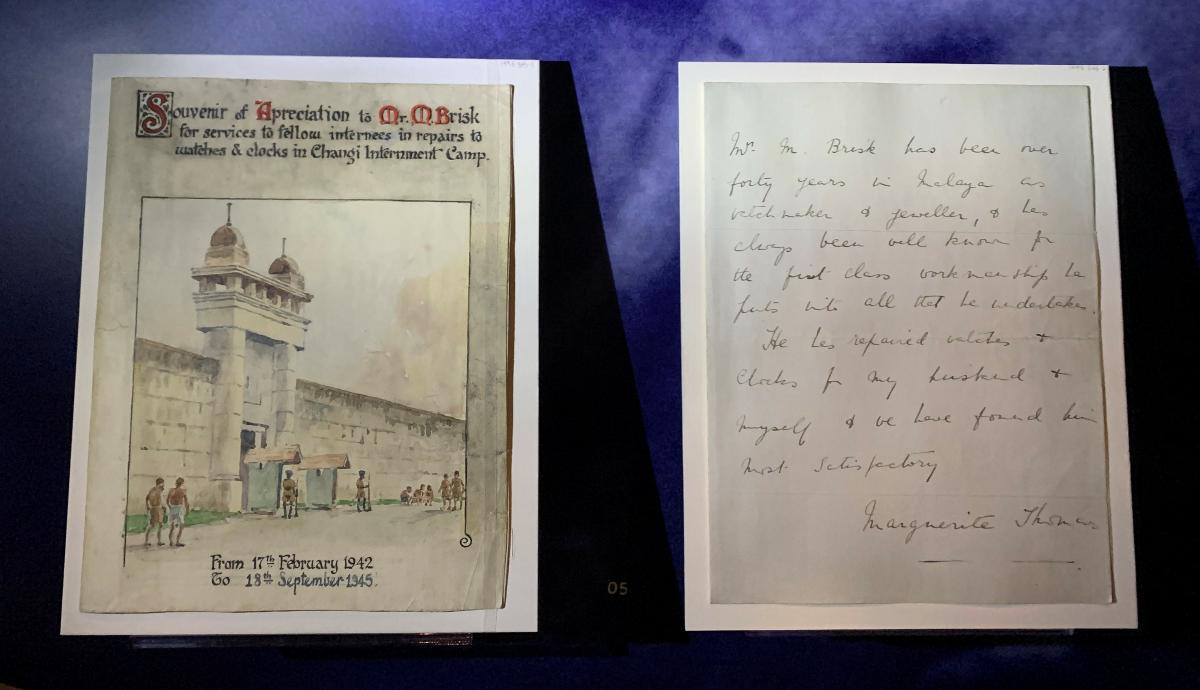 Souvenir of Apreciation to Mr. M. Brisk
for services to fellow internees in repairs to
watches & clocks in Changi Internment Camp.
From 17th February 1942
To 18th September 1945.
05
Mr. M. Brisk has been over
forty years in Malaya as
watchmaker & jeweller, & has
always been well known for
the first class workmanship he
puts into all that he undertakes.
He has repaired watches &
clocks for my husband &
myself & we have found him
most satisfactory
Marguerite Thomas